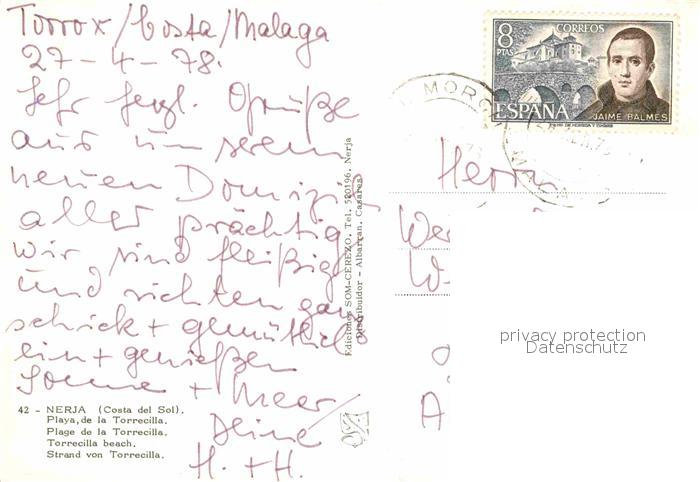 Torrox/Costa/Malaga
27-4-78.
Sehr herzl. Grüße
aus unserem
neuen Domizil
alles prächtig
Wir sind fleißig
und richten ganz
schick + gemütlich
ein + genießen
Sonne + Meer
Deine
H. + H.
42 - NERJA (Costa del Sol).
Playa, de la Torrecilla.
Plage de la Torrecilla.
Torrecilla beach.
Strand von Torrecilla.
Ediciones SOM-CEREZO. Tel. 520196. Nerja
Distribuidor - Albarran. Casares
8
PTAS
CORREOS
ESPAÑA
JAIME BALMES
MALAGA
Herrn
We
W
A
privacy protection
Datenschutz